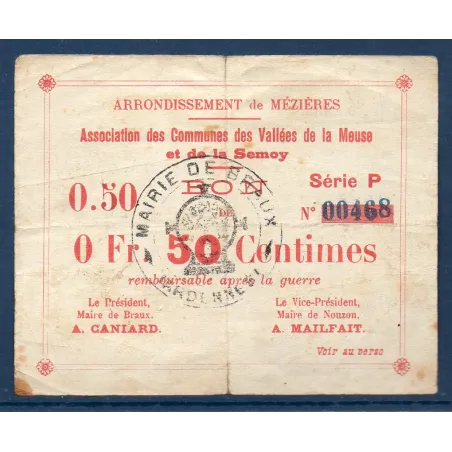 ARRONDISSEMENT de MÉZIÈRES
Association des Communes des Vallées de la Meuse
et de la Semoy
0.50
BON
DE
Série P
N° 00468
0 Fr. 50 Centimes
remboursable après la guerre
Le Président,
Maire de Braux.
A. CANIARD.
Le Vice-Président,
Maire de Nouzon,
A. MAILFAIT.
Voir au verso
MAIRIE DE BRAUX
(ARDENNES)